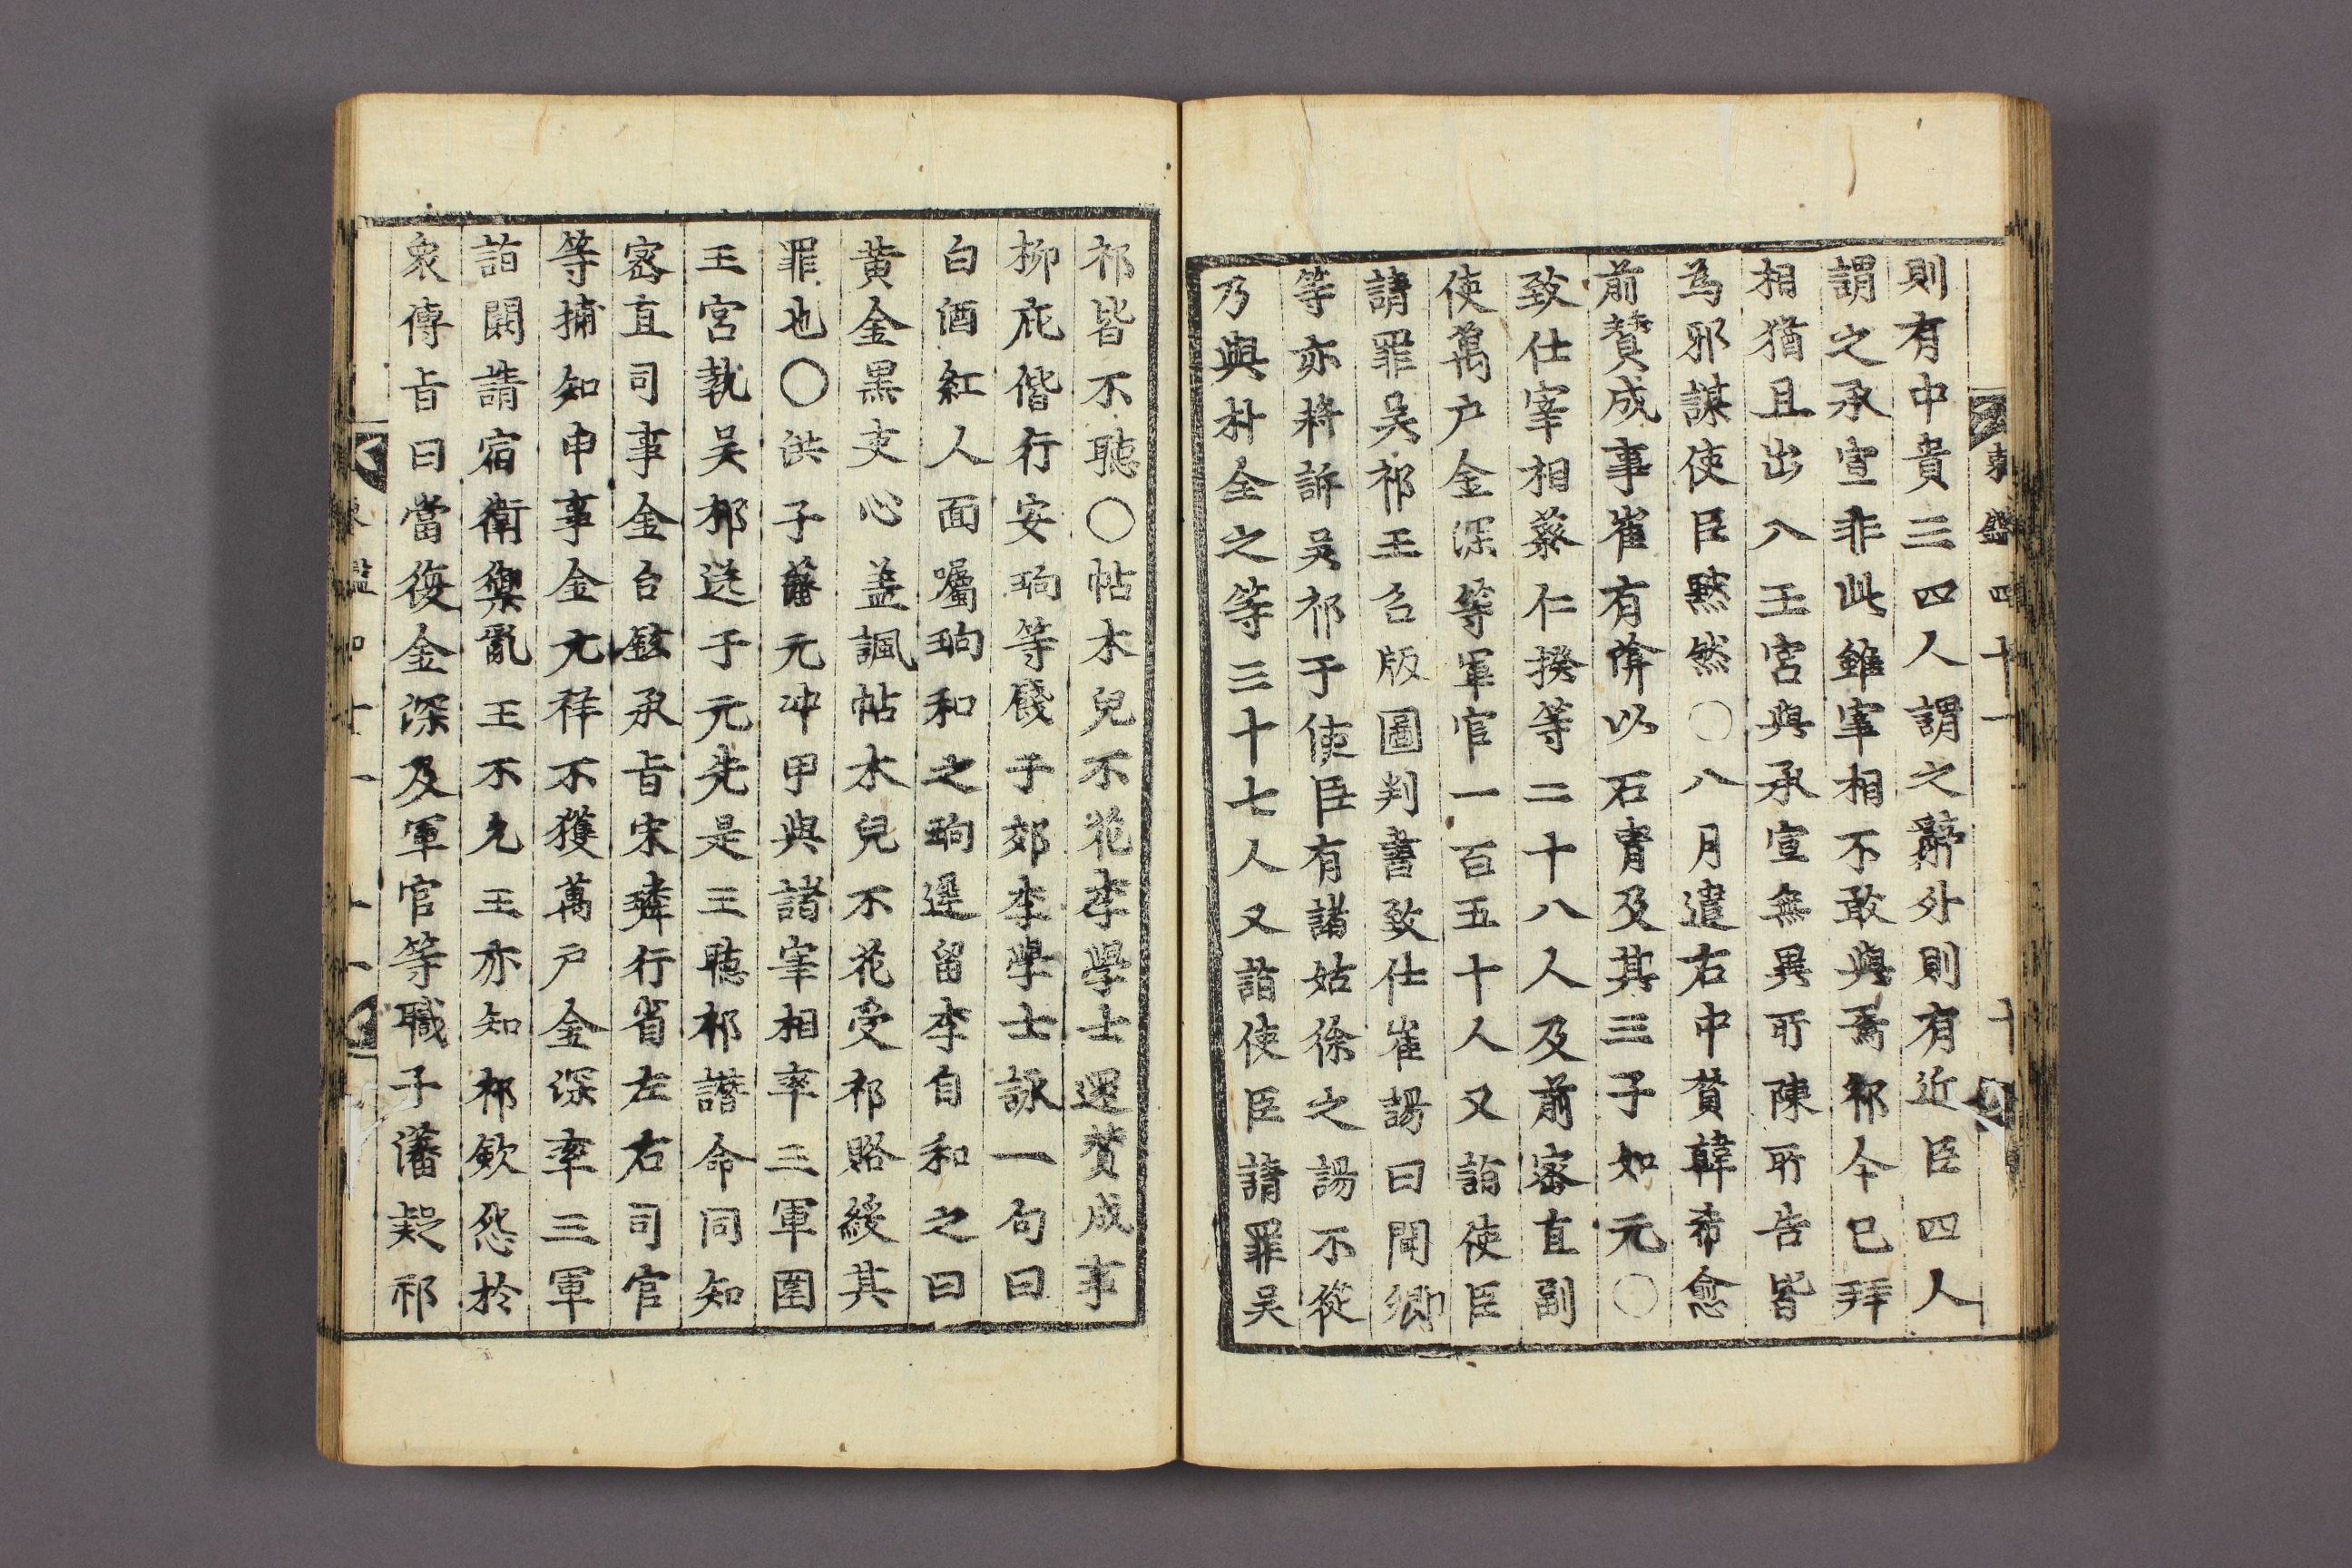 東鑑四十一
十
則有中貴三四人謂之辭外則有近臣四人
謂之承宣非此雖宰相不敢與焉祁今已拜
相猶且出入王宮與承宣無異所陳所告皆
為邪謀使臣黙然○八月遣右中賛韓希愈
前賛成事崔有渰以石冑及其三子如元○
致仕宰相蔡仁揆等二十八人及前密直副
使萬户金深等軍官一百五十人又詣使臣
請罪吳祁王召版圖判書致仕崔諹曰聞卿
等亦將訴吳祁于使臣有諸姑徐之諹不從
乃與朴全之等三十七人又詣使臣請罪吳
祁皆不聽○帖木兒不花李學士還賛成事
柳庇偕行安珦等餞于郊李學士詠一句曰
白酒紅人面囑珦和之珦遲留李自和之曰
黄金黒吏心盖諷帖木兒不花受祁賂緩其
罪也○洪子藩元冲甲與諸宰相率三軍圍
王宮執吳祁送于元先是王聽祁譖命同知
密直司事金台鉉承旨宋璘行省左右司官
等捕知申事金元祥不獲萬户金深率三軍
詣闕請宿衛禦亂王不允王亦知祁歛怨於
衆傳旨曰當復金深及軍官等職子藩疑祁
東鑑四十一
十一